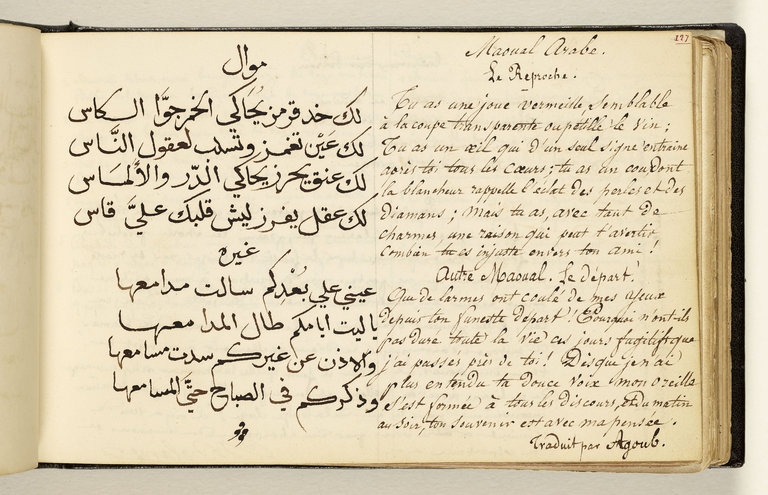 موال
لك خد قرمزي يحاكي الخمر جوّا الكاس
لك عَيْن تغمز وتسلب لعقول النَّاس
لك عنق يحرز يحاكي الدّر والألماس
لك عقل يفرز ليش قلبك عليَّ قاس
غيره
عيني علي بُعْدكم سالت مدامعها
يا ليت ايامكم طال المدا معها
والاذن عن غيركم سدت مسامعها
وذكركم في الصباح حتَّي المسا معها
127
Maoual Arabe.
Le Reproche.
Tu as une joue vermeille, semblable
à la coupe transparente ou pétille le vin;
Tu as un œil qui d'un seul signe entraine
après toi tous les cœurs; tu as un cou dont
la blancheur rappelle l'éclat des perles et des
Diamans; mais tu as, avec tant de
charmes, une raison qui peut t'avertir
combien tu es injuste envers ton ami!
Autre Maoual. Le départ.
Que de larmes ont coulé de mes yeux
depuis ton funeste départ! Pourquoi n'ont-ils
pas duré toute la vie ces jours fugitifs que
j'ai passés près de toi! Dès que je n'ai
plus entendu ta douce voix mon oreille
s'est fermée à tous les discours, et du matin
au soir, ton souvenir est avec ma pensée.
Traduit par Agoub.